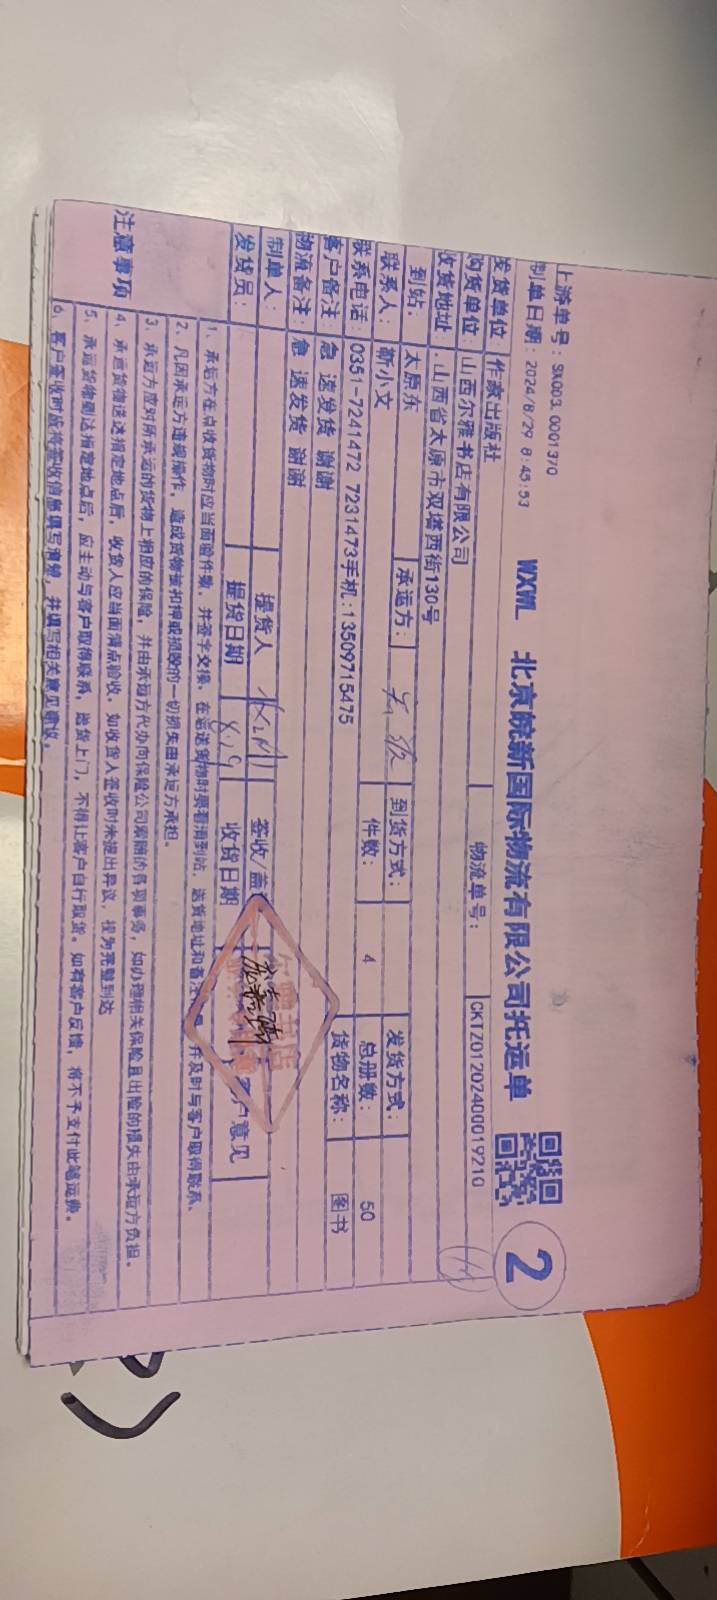 上游单号：SX003.0001370
制单日期：2024/8/29 8:45:53
WXWL 北京皖新国际物流有限公司托运单
2
发货单位： 作家出版社 物流单号： CKTZ01202400019210
购货单位： 山西尔雅书店有限公司
收货地址： .山西省太原市双塔西街130号
到站： 太原东 承运方： 到货方式： 发货方式：
联系人： 靳小文 件数： 4 总册数： 50
联系电话： 0351-7241472 7231473手机:13509715475 货物名称： 图书
客户备注： 急 速发货 谢谢
物流备注： 急 速发货 谢谢
制单人： 提货人 签收/盖
发货员： 提货日期 8.29 收货日期 客户意见
注意事项
1、承运方在点收货物时应当面验件数，并签字交接，在运送货物时要看清到站、送货地址和备注 并及时与客户取得联系。
2、凡因承运方违规操作，造成货物被扣押或损毁的一切损失由承运方承担。
3、承运方应对所承运的货物上相应的保险，并由承运方代办向保险公司索赔的各项事务，如办理相关保险且出险的损失由承运方负担。
4、承运货物送达指定地点后，收货人应当面清点验收，如收货人签收时未提出异议，视为完整到达
5、承运货物到达指定地点后，应主动与客户取得联系，送货上门，不得让客户自行取货。如有客户反馈，将不予支付此笔运费。
6、客户签收时应将签收信息填写清楚，并填写相关意见建议。